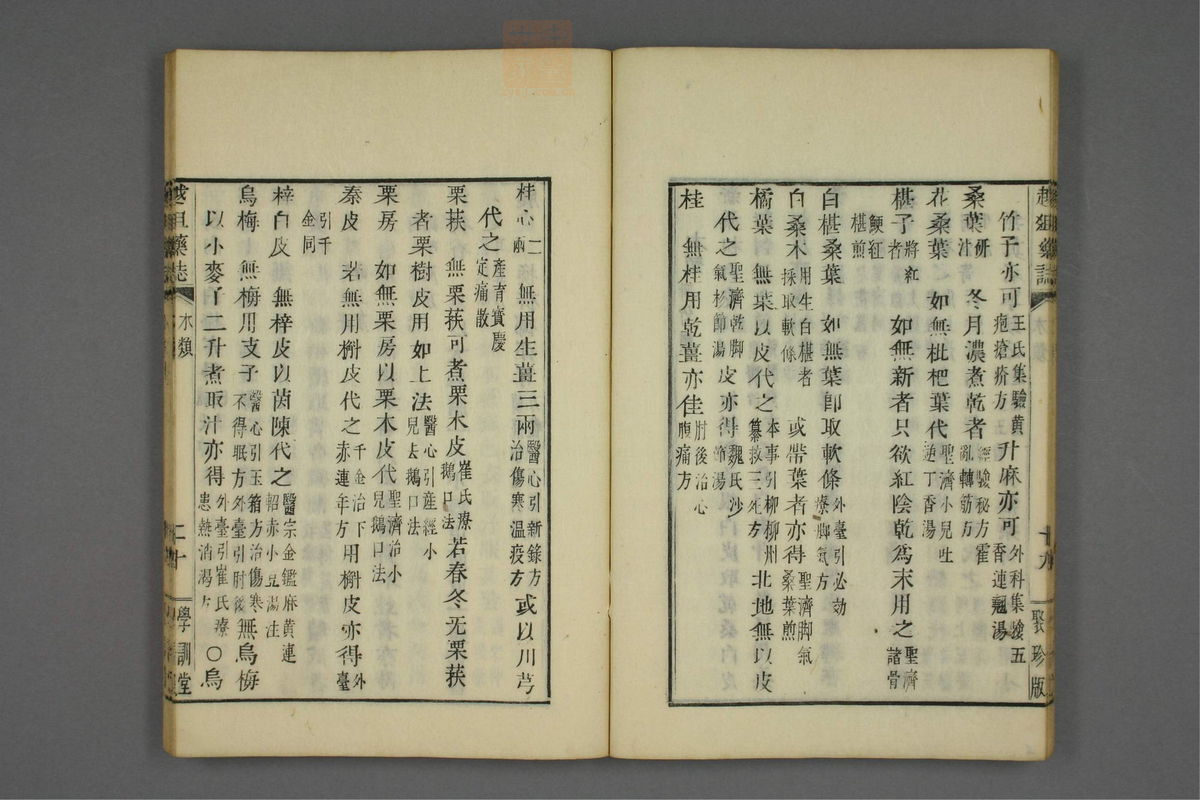 竹子亦可王氏集驗黄疱瘡疥方升麻亦可外科集驗五香連翹湯
桑葉研汁 冬月濃煮乾者經驗秘方霍亂轉筋方
花桑葉 如無枇杷葉代聖濟小兒吐逆丁香湯
椹子將紅者 如無新者只欲紅陰乾爲末用之聖濟諸骨
鯁紅椹煎
白椹桑葉 如無葉卽取軟條外臺引必効療脚氣方
白桑木用生白椹者採取軟條 或帶葉者亦得聖濟脚氣桑葉煎
橘葉 無葉以皮代之本事引柳柳州纂救三死方北地無以皮
代之聖濟乾脚氣杉節湯皮亦得魏氏沙節湯
桂 無桂用乾薑亦佳肘後治心腹痛方
聚珍版
桂心二兩 無用生薑三兩醫心引新錄方治傷寒温疫方或以川芎
代之産育寶慶定痛散
栗荴 無栗荴可煮栗木皮崔氏療鵝口法若春冬无栗荴
者栗樹皮用如上法醫心引産經小兒去鵝口法
栗房 如無栗房以栗木皮代聖濟治小兒鵝口法
秦皮 若無用槲皮代之千金治下赤連年方用槲皮亦得外臺
引千金同
梓白皮 無梓皮以茵陳代之醫宗金鑑麻黄連軺赤小豆湯注
烏梅 無梅用支子醫心引玉箱方治傷寒不得眠方外臺引肘後無烏梅
以小麥了二升煮取汁亦得外臺引崔氏療患熱消渴方○烏
木類
二十
學訓堂